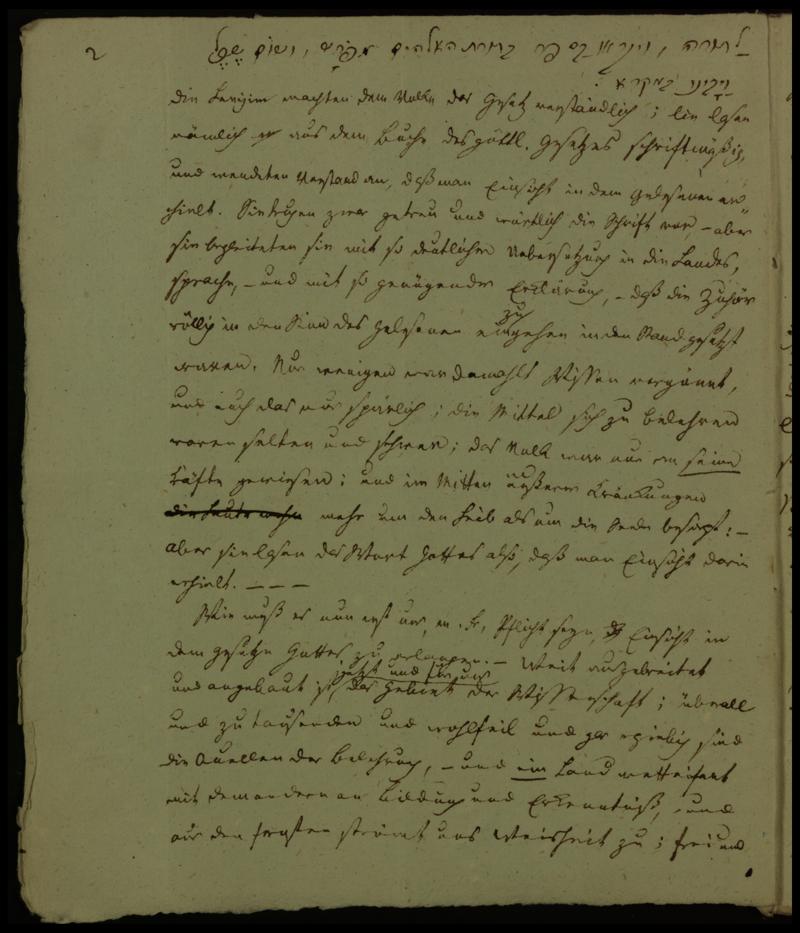 2
לתורה, ויקראו בספר בתורת האלהים מפרש, ושום שֶׂכֶל
ויבינו במקרא.
die Levijim machten dem Volke das Gesetz verständlich; sie lasen
nämlich aus dem Buche des göttl. Gesetzes schriftmäßig,
und wendeten Verstand an, daß man Einsicht in dem Gelesenen er¬
hielt. Sie trugen zwar getreu und wörtlich die Schrift vor, – aber
sie begleiteten sie mit so deutlicher Uebersetzung in die Landes¬
sprache, – und mit so genügender Erklärung, – daß die Zuhörer
völlig in den Sinn des Gelesenen einzugehen in den Stand gesetzt
waren. Nur wenigen war damahls Wissen vergönnt,
und auch das nur spärlich; die Mittel sich zu belehren
waren selten und schwer; das Volk war nur an seine
Kräfte gewiesen; und im Mitten äußerer Kränkungen
mehr um den Leib als um die Seele besorgt: –
aber sie lasen das Wort Gottes also, daß man Einsicht darin
erhielt. – – –
Wie muß es nun erst uns, m. Fr., Pflicht seyn, Einsicht in
dem Gesetze Gottes zu erlangen. – Weit ausgebreitet
und angebaut ist jetzt und für uns das Gebiet der Wissenschaft; überall
und zu tausenden und wohlfeil und gar ergiebig sind
die Quellen der Belehrung, – und ein Land wetteifert
mit dem andern an Bildung und Erkenntniß, und
aus den fernsten strömt uns Weisheit zu; frei und